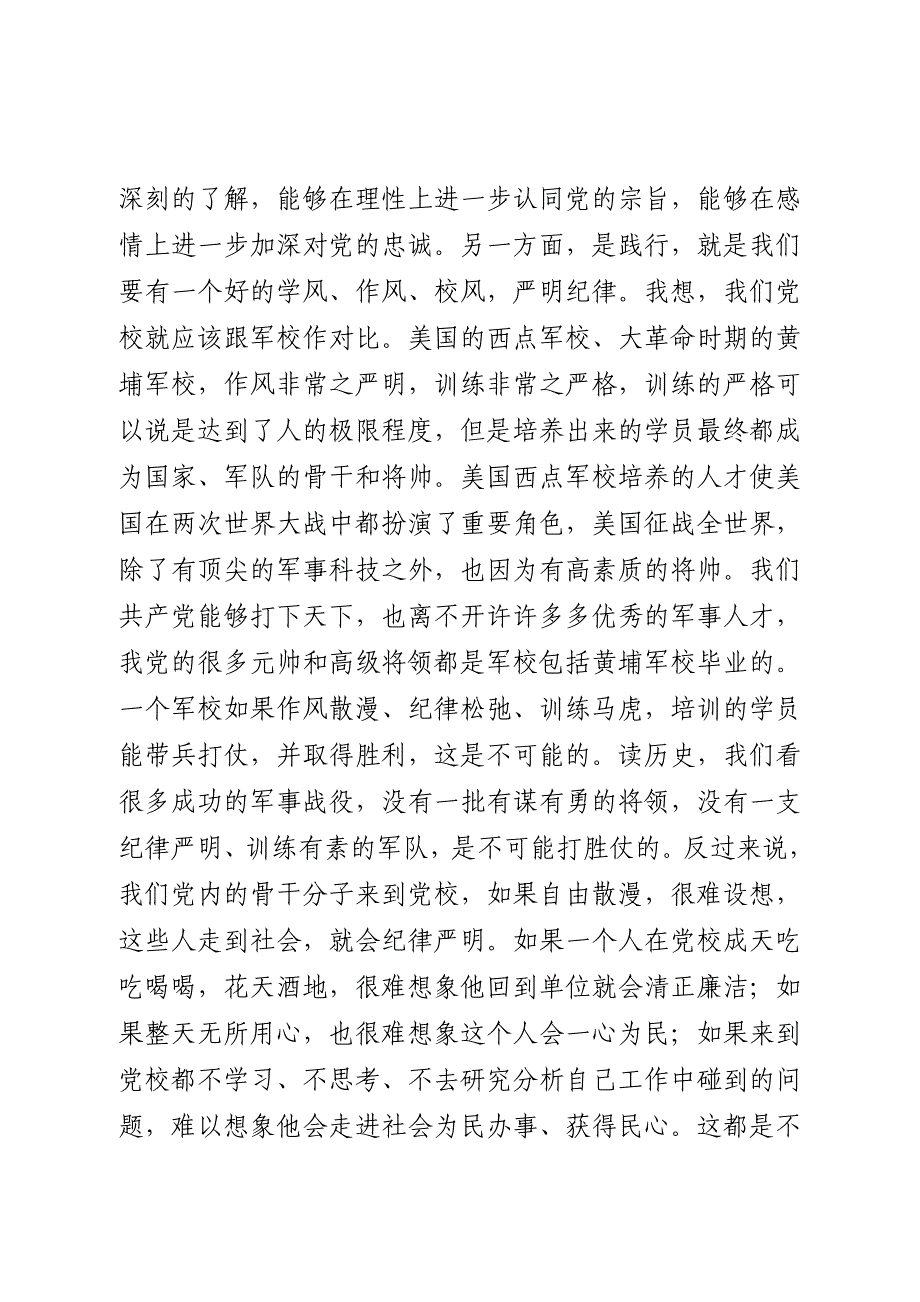 深刻的了解，能够在理性上进一步认同党的宗旨，能够在感
情上进一步加深对党的忠诚。另一方面，是践行，就是我们
要有一个好的学风、作风、校风，严明纪律。我想，我们党
校就应该跟军校作对比。美国的西点军校、大革命时期的黄
埔军校，作风非常之严明，训练非常之严格，训练的严格可
以说是达到了人的极限程度，但是培养出来的学员最终都成
为国家、军队的骨干和将帅。美国西点军校培养的人才使美
国在两次世界大战中都扮演了重要角色，美国征战全世界，
除了有顶尖的军事科技之外，也因为有高素质的将帅。我们
共产党能够打下天下，也离不开许许多多优秀的军事人才，
我党的很多元帅和高级将领都是军校包括黄埔军校毕业的。
一个军校如果作风散漫、纪律松弛、训练马虎，培训的学员
能带兵打仗，并取得胜利，这是不可能的。读历史，我们看
很多成功的军事战役，没有一批有谋有勇的将领，没有一支
纪律严明、训练有素的军队，是不可能打胜仗的。反过来说，
我们党内的骨干分子来到党校，如果自由散漫，很难设想，
这些人走到社会，就会纪律严明。如果一个人在党校成天吃
吃喝喝，花天酒地，很难想象他回到单位就会清正廉洁；如
果整天无所用心，也很难想象这个人会一心为民；如果来到
党校都不学习、不思考、不去研究分析自己工作中碰到的问
题，难以想象他会走进社会为民办事、获得民心。这都是不